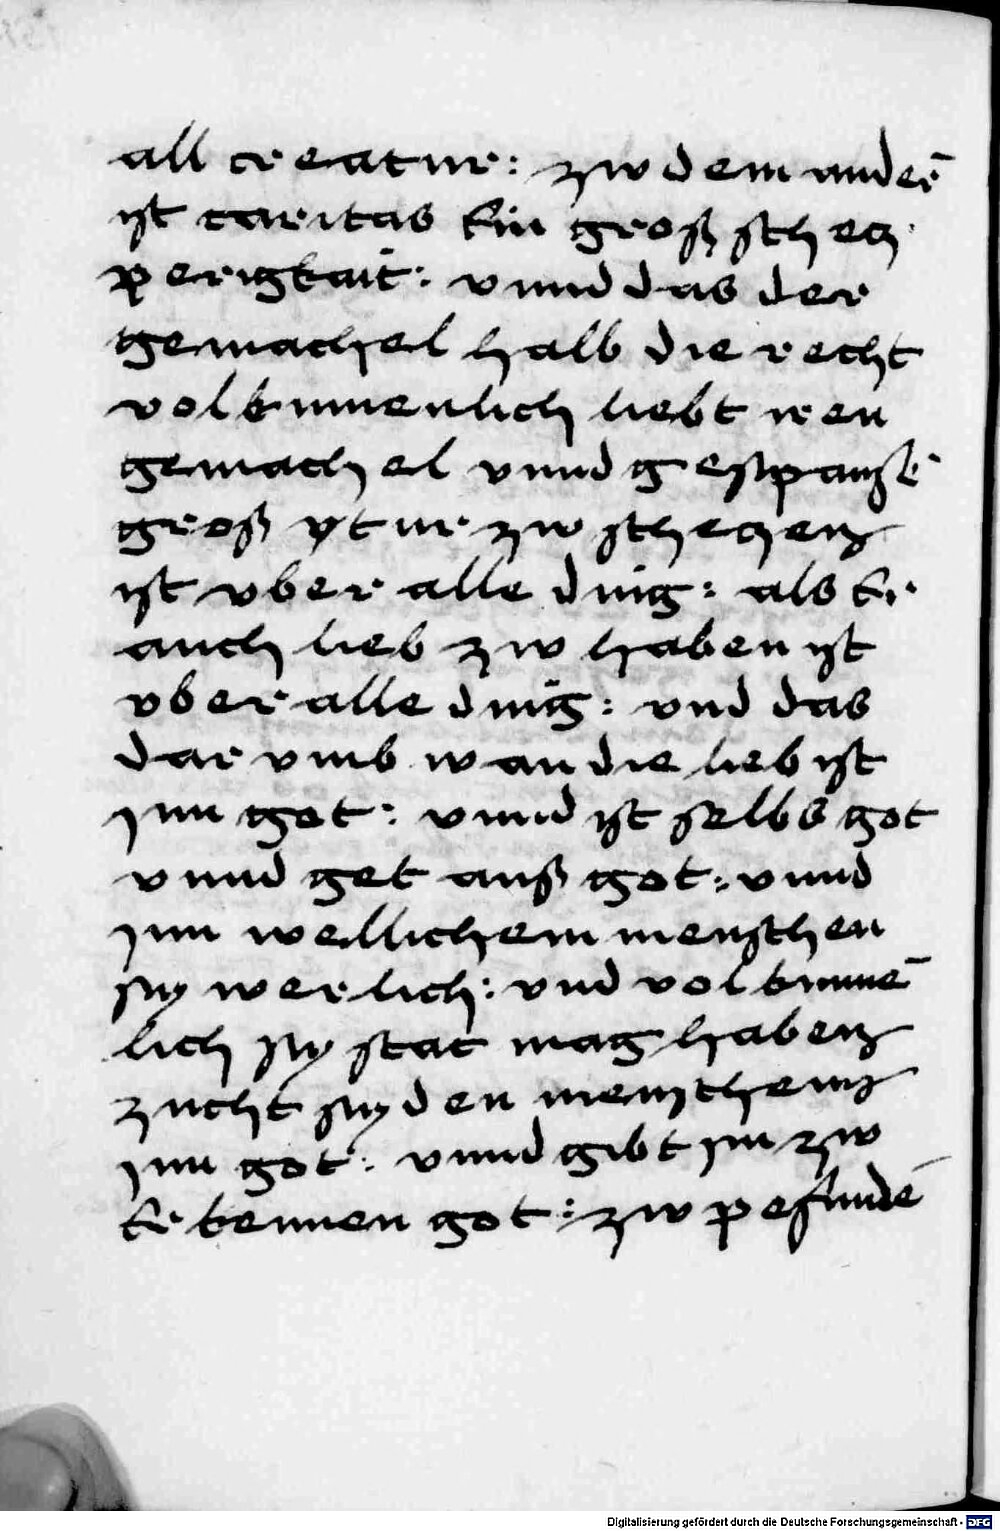 all creatur: zw dem andern̄
ist caritas Ein groß schecz
perigkait: vnnd das der
gemachel halb die recht
volkumenlich liebt iren
gemachel vnnd gespanß
groß vrtur zw scheczen
ist vber alle ding: als Er
auch lieb zw haben ist
vber alle ding: vnd das
dar vmb wan die lieb ist
jnn got: vnnd ist selbs got
vnnd get auß got: vnnd
jnn wellichem menschen
sy werlich: vnd volkumē
lich sy stat mag haben
zucht sy den menschen
jnn got: vnnd gibt jm zw
Erkennen got: zw pefindē
Digitalisierung gefördert durch die Deutsche Forschungsgemeinschaft - DFG